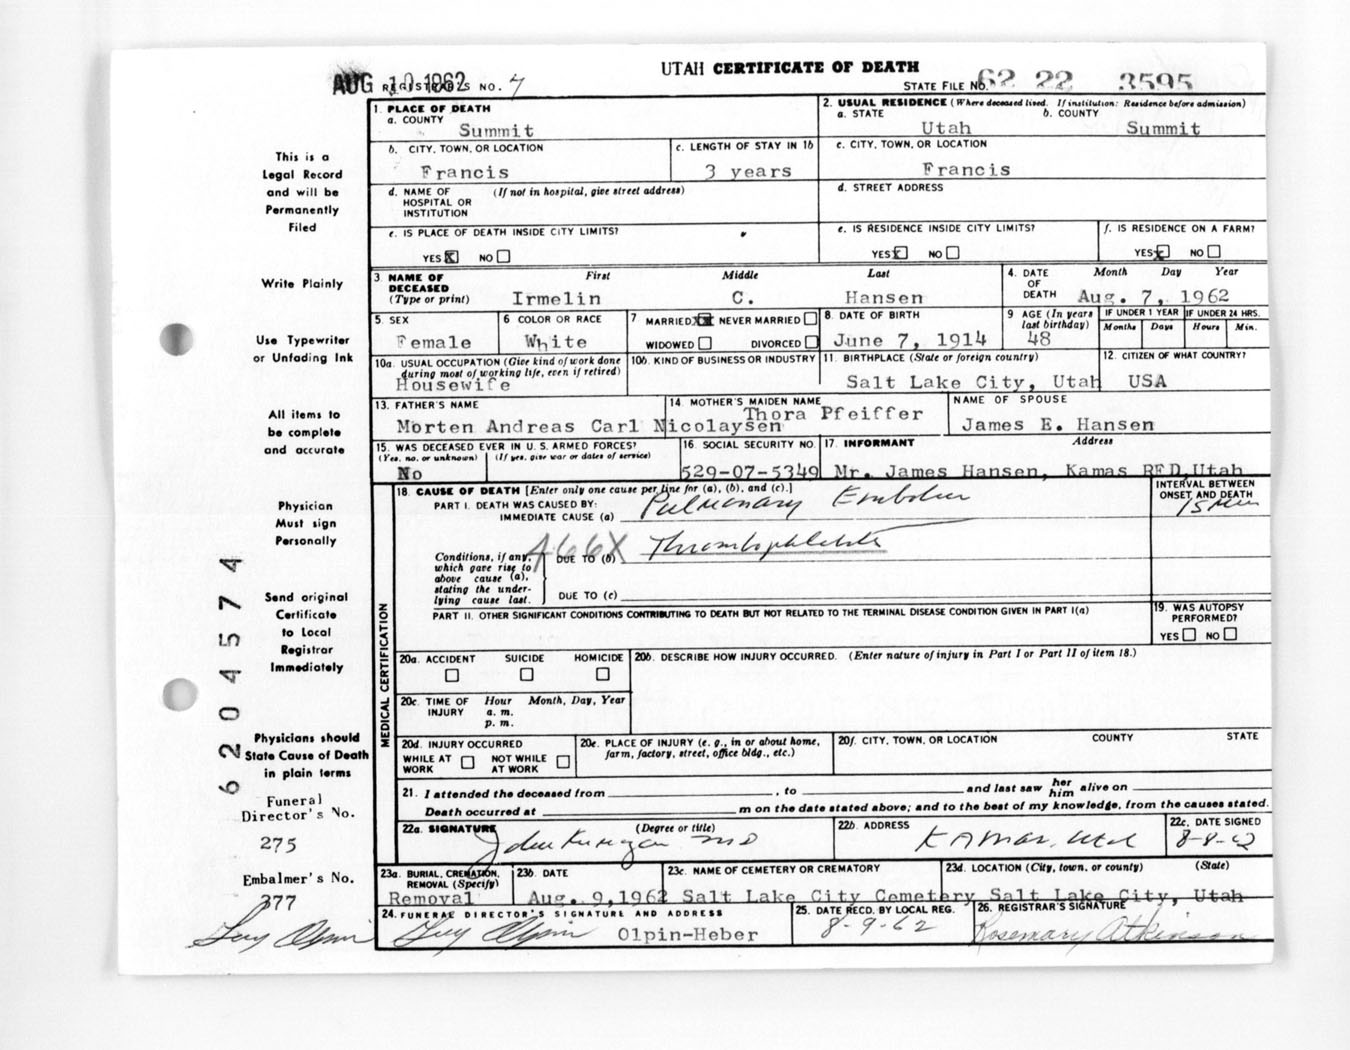 UTAH CERTIFICATE OF DEATH
AUG 10 1962 REGISTRAR'S NO. 7
STATE FILE NO. 62 22 3595
This is a
Legal Record
and will be
Permanently
Filed
1. PLACE OF DEATH
a. COUNTY
Summit
2. USUAL RESIDENCE (Where deceased lived. If institution: Residence before admission)
a. STATE b. COUNTY
Utah Summit
b. CITY, TOWN, OR LOCATION
Francis
c. LENGTH OF STAY IN 1b
3 years
c. CITY, TOWN, OR LOCATION
Francis
d. NAME OF (If not in hospital, give street address)
HOSPITAL OR
INSTITUTION
d. STREET ADDRESS
e. IS PLACE OF DEATH INSIDE CITY LIMITS?
YES X NO
e. IS RESIDENCE INSIDE CITY LIMITS?
YES X NO
f. IS RESIDENCE ON A FARM?
YES X NO
Write Plainly
3. NAME OF First Middle Last
DECEASED
(Type or print) Irmelin C. Hansen
4. DATE Month Day Year
OF
DEATH Aug. 7, 1962
Use Typewriter
or Unfading Ink
5. SEX
Female
6. COLOR OR RACE
White
7. MARRIED X NEVER MARRIED
WIDOWED DIVORCED
8. DATE OF BIRTH
June 7, 1914
9. AGE (In years
last birthday)
48
IF UNDER 1 YEAR IF UNDER 24 HRS.
Months Days Hours Min.
10a. USUAL OCCUPATION (Give kind of work done
during most of working life, even if retired)
Housewife
10b. KIND OF BUSINESS OR INDUSTRY
11. BIRTHPLACE (State or foreign country)
Salt Lake City, Utah
12. CITIZEN OF WHAT COUNTRY?
USA
All items to
be complete
and accurate
13. FATHER'S NAME
Morten Andreas Carl Nicolaysen
14. MOTHER'S MAIDEN NAME
Thora Pfeiffer
NAME OF SPOUSE
James E. Hansen
15. WAS DECEASED EVER IN U. S. ARMED FORCES?
(Yes, no, or unknown) (If yes, give war or dates of service)
No
16. SOCIAL SECURITY NO.
529-07-5349
17. INFORMANT Address
Mr. James Hansen, Kamas RFD, Utah
Physician
Must sign
Personally
Send original
Certificate
to Local
Registrar
Immediately
Physicians should
State Cause of Death
in plain terms
6204574
MEDICAL CERTIFICATION
18. CAUSE OF DEATH [Enter only one cause per line for (a), (b), and (c).]
PART I. DEATH WAS CAUSED BY:
IMMEDIATE CAUSE (a) Pulmonary Embolus
INTERVAL BETWEEN
ONSET AND DEATH
15 Min
Conditions, if any,
which gave rise to
above cause (a),
stating the under-
lying cause last.
466X
DUE TO (b) Thrombophlebitis
DUE TO (c)
PART II. OTHER SIGNIFICANT CONDITIONS CONTRIBUTING TO DEATH BUT NOT RELATED TO THE TERMINAL DISEASE CONDITION GIVEN IN PART I(a)
19. WAS AUTOPSY
PERFORMED?
YES NO
20a. ACCIDENT SUICIDE HOMICIDE
20b. DESCRIBE HOW INJURY OCCURRED. (Enter nature of injury in Part I or Part II of item 18.)
20c. TIME OF Hour Month, Day, Year
INJURY a. m.
p. m.
20d. INJURY OCCURRED
WHILE AT NOT WHILE
WORK AT WORK
20e. PLACE OF INJURY (e. g., in or about home,
farm, factory, street, office bldg., etc.)
20f. CITY, TOWN, OR LOCATION COUNTY STATE
21. I attended the deceased from , to and last saw her him alive on
Death occurred at m on the date stated above; and to the best of my knowledge, from the causes stated.
22a. SIGNATURE (Degree or title)
MD
22b. ADDRESS
Kamas, Utah
22c. DATE SIGNED
8-8-62
Funeral
Director's No.
275
Embalmer's No.
377
Guy Olpin
23a. BURIAL, CREMATION,
REMOVAL (Specify)
Removal
23b. DATE
Aug. 9, 1962
23c. NAME OF CEMETERY OR CREMATORY
Salt Lake City Cemetery
23d. LOCATION (City, town, or county) (State)
Salt Lake City, Utah
24. FUNERAL DIRECTOR'S SIGNATURE AND ADDRESS
Guy Olpin Olpin-Heber
25. DATE RECD. BY LOCAL REG.
8-9-62
26. REGISTRAR'S SIGNATURE
Rosemary Atkinson